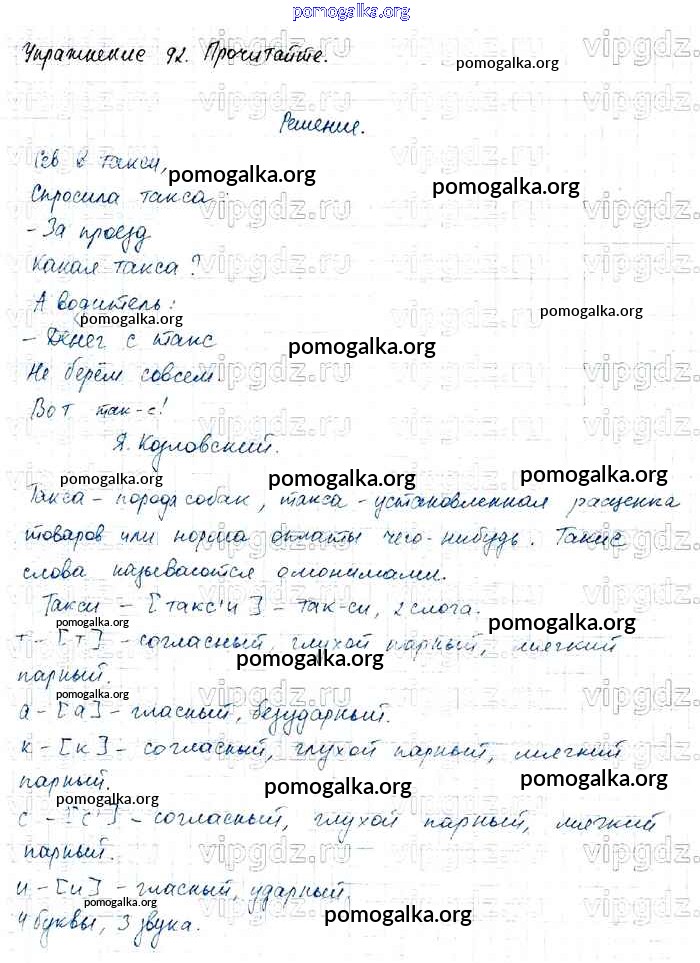 pomogalka.org
Упражнение 92. Прочитайте.
pomogalka.org
Решение.
Сев в такси,
pomogalka.org
pomogalka.org
Спросила такса:
- За проезд
Какая такса?
А водитель:
pomogalka.org
pomogalka.org
- Денег с такс
pomogalka.org
Не берём совсем.
Вот так-с!
Я. Козловский.
pomogalka.org
pomogalka.org
pomogalka.org
Такса - порода собак, такса - установленная расценка
товаров или норма оплаты чего-нибудь. Такие
слова называются омонимами.
Такси - [такс'и] - так-си, 2 слога.
pomogalka.org
pomogalka.org
т - [т] - согласный, глухой парный, мягкий
pomogalka.org
парный.
pomogalka.org
а - [а] - гласный, безударный.
к - [к] - согласный, глухой парный, мягкий
парный.
pomogalka.org
pomogalka.org
pomogalka.org
с - [с'] - согласный, глухой парный, мягкий
парный.
и - [и] - гласный, ударный.
pomogalka.org
pomogalka.org
4 буквы, 3 звука.
vipgdz.ru